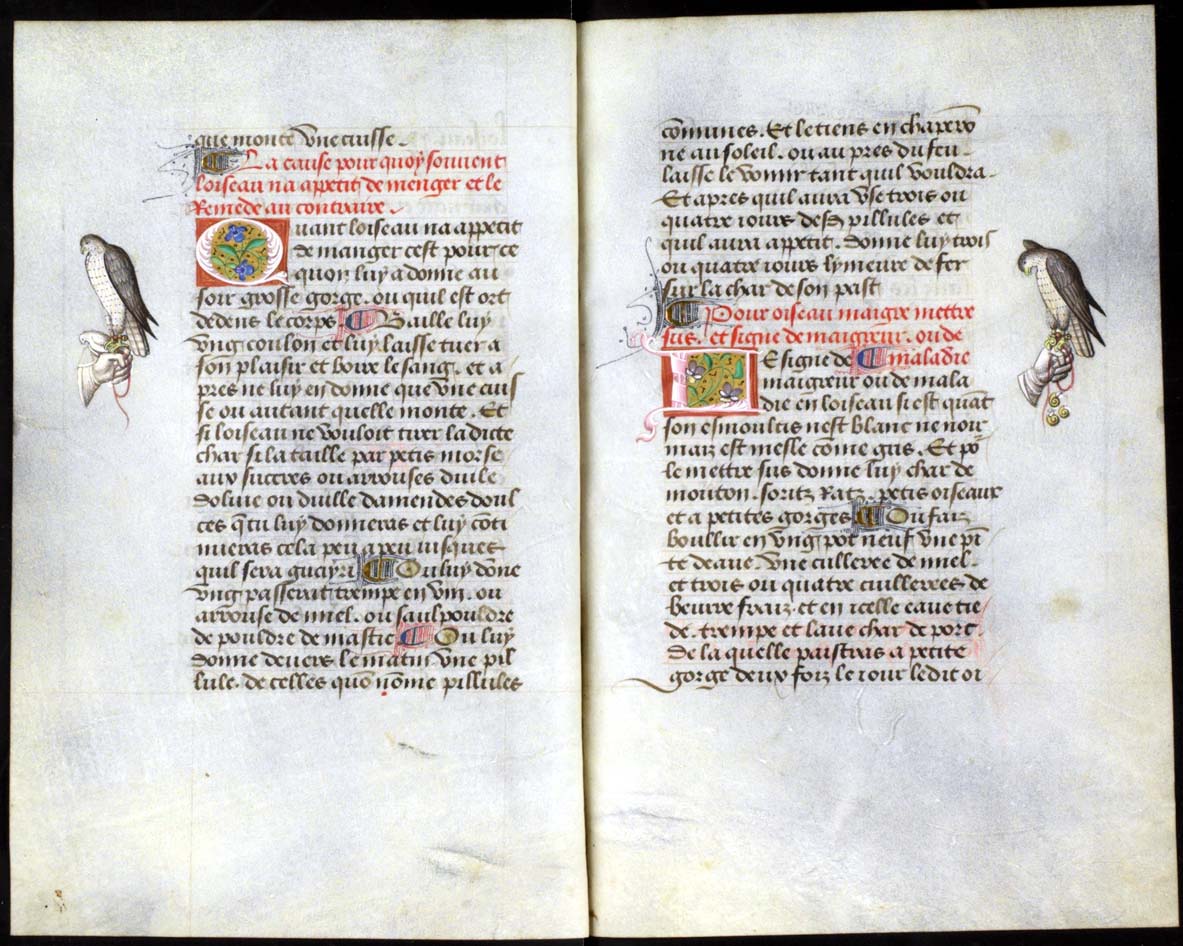 que monte vne cuisse.
La cause pour quoy souuent
loiseau na appetit de menger et le
Remede au contraire.
Quant loiseau na appetit
de manger cest pour ce
quon luy a donne au
soir grosse gorge. ou quil est ort
dedens le corps Baille luy
vng coulon et luy laisse tuer a
son plaisir et boire le sang. et a
pres ne luy en donne que vne cuis
se ou autant quelle monte. Et
si loiseau ne vouloit tirer la dicte
char si la taille par petis morse
aux succres ou arrouses duile
doliue ou duille damendes doul
ces q̄ tu luy donneras et luy cōti
nueras cela peu a peu iusques
quil sera guayri Ou luy dōne
vng passerat trempe en vin. ou
arrouse de miel. ou saulpouldre
de pouldre de mastic Ou luy
donne deuers le matin vne pil
lule. de celles quō nōme pillules
cōmunes. Et le tiens en chaperō
ne au soleil. ou au pres du feu.
laisse le vomir tant quil vouldra.
Et apres quil aura vse trois ou
quatre iours desd pillules et
quil aura appetit. donne luy trois
ou quatre iours lymeure de fer
sur la char de son past
Pour oiseau maigre mettre
sus. et signe de maigreur. ou de
maladie
Le signe de
maigreur ou de mala
die en loiseau si est quāt
son esmoultis nest blanc ne noir
maiz est mesle cōme gris. Et po
le mettre sus donne luy char de
mouton. soritz Ratz. petis oiseaux
et a petites gorges Ou faiz
boullir en vng pot neuf vne pī
te deaue. vne culleree de miel.
et trois ou quatre cuillerees de
beurre fraiz. et en icelle eaue tie
de. trempe et laue char de porc.
De la quelle paistras a petite
gorge deux foiz le iour ledit oi